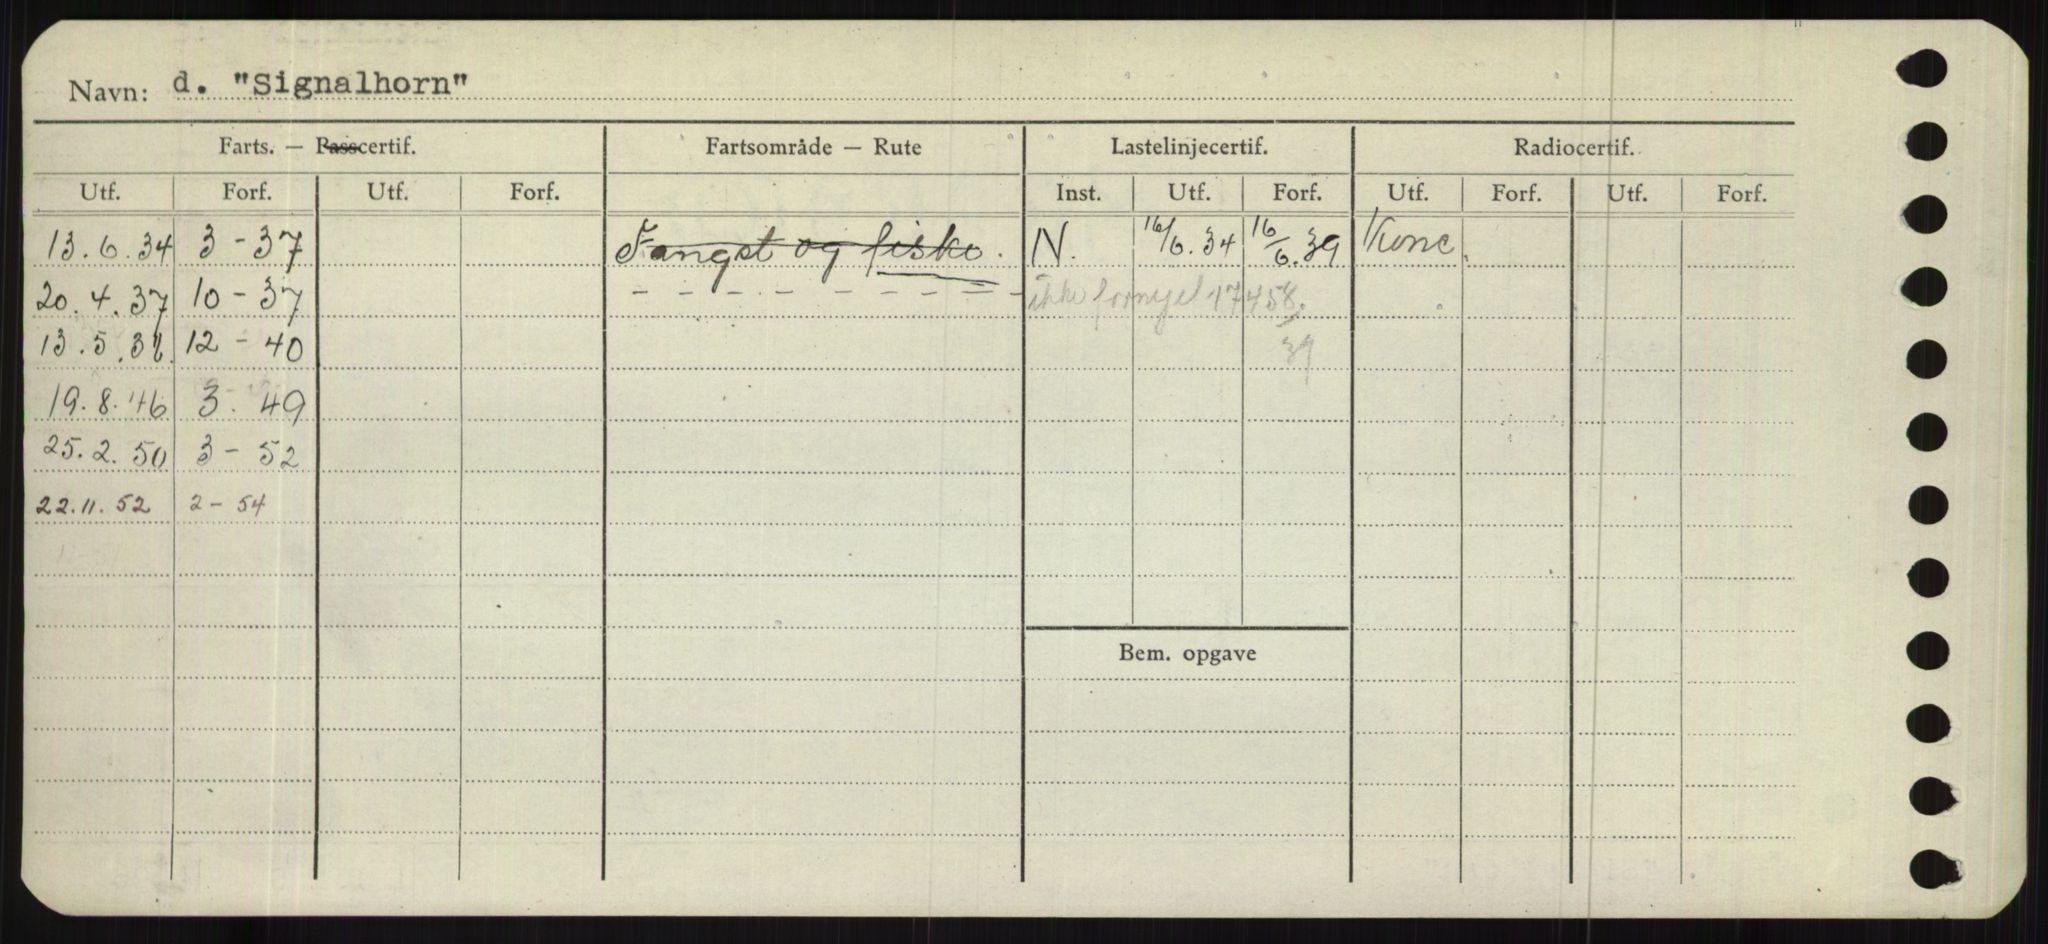 Navn: d. "Signalhorn"
Farts. — Passcertif. Fartsområde — Rute Lastelinjecertif. Radiocertif.
Utf. Forf. Utf. Forf. Inst. Utf. Forf. Utf. Forf. Utf. Forf.
13.6.34 3-37 Fangst og fiske. N. 16/6.34 16/6.39 Konc.
20.4.37 10-37 - - - - - - - - - ikke fornyet 17458/39
13.5.38 12-40
19.8.46 3.49
25.2.50 3-52
22.11.52 2-54
Bem. opgave